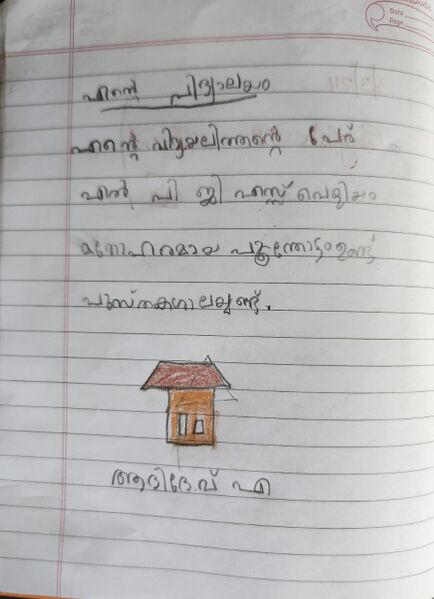 Date
Page
എന്റെ വിദ്യാലയം
എന്റെ വിദ്യാലത്തിന്റെ പേര്
എൽ പി ജി എസ്സ് വെളിയം
മനോഹരമായ പൂന്തോട്ടം ഉണ്ട്
പുസ്തകശാലയുണ്ട്.
ആദിദേവ് എ